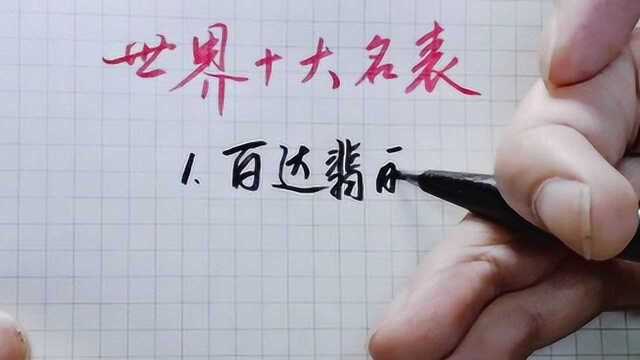 世界十大名表
1. 百达翡